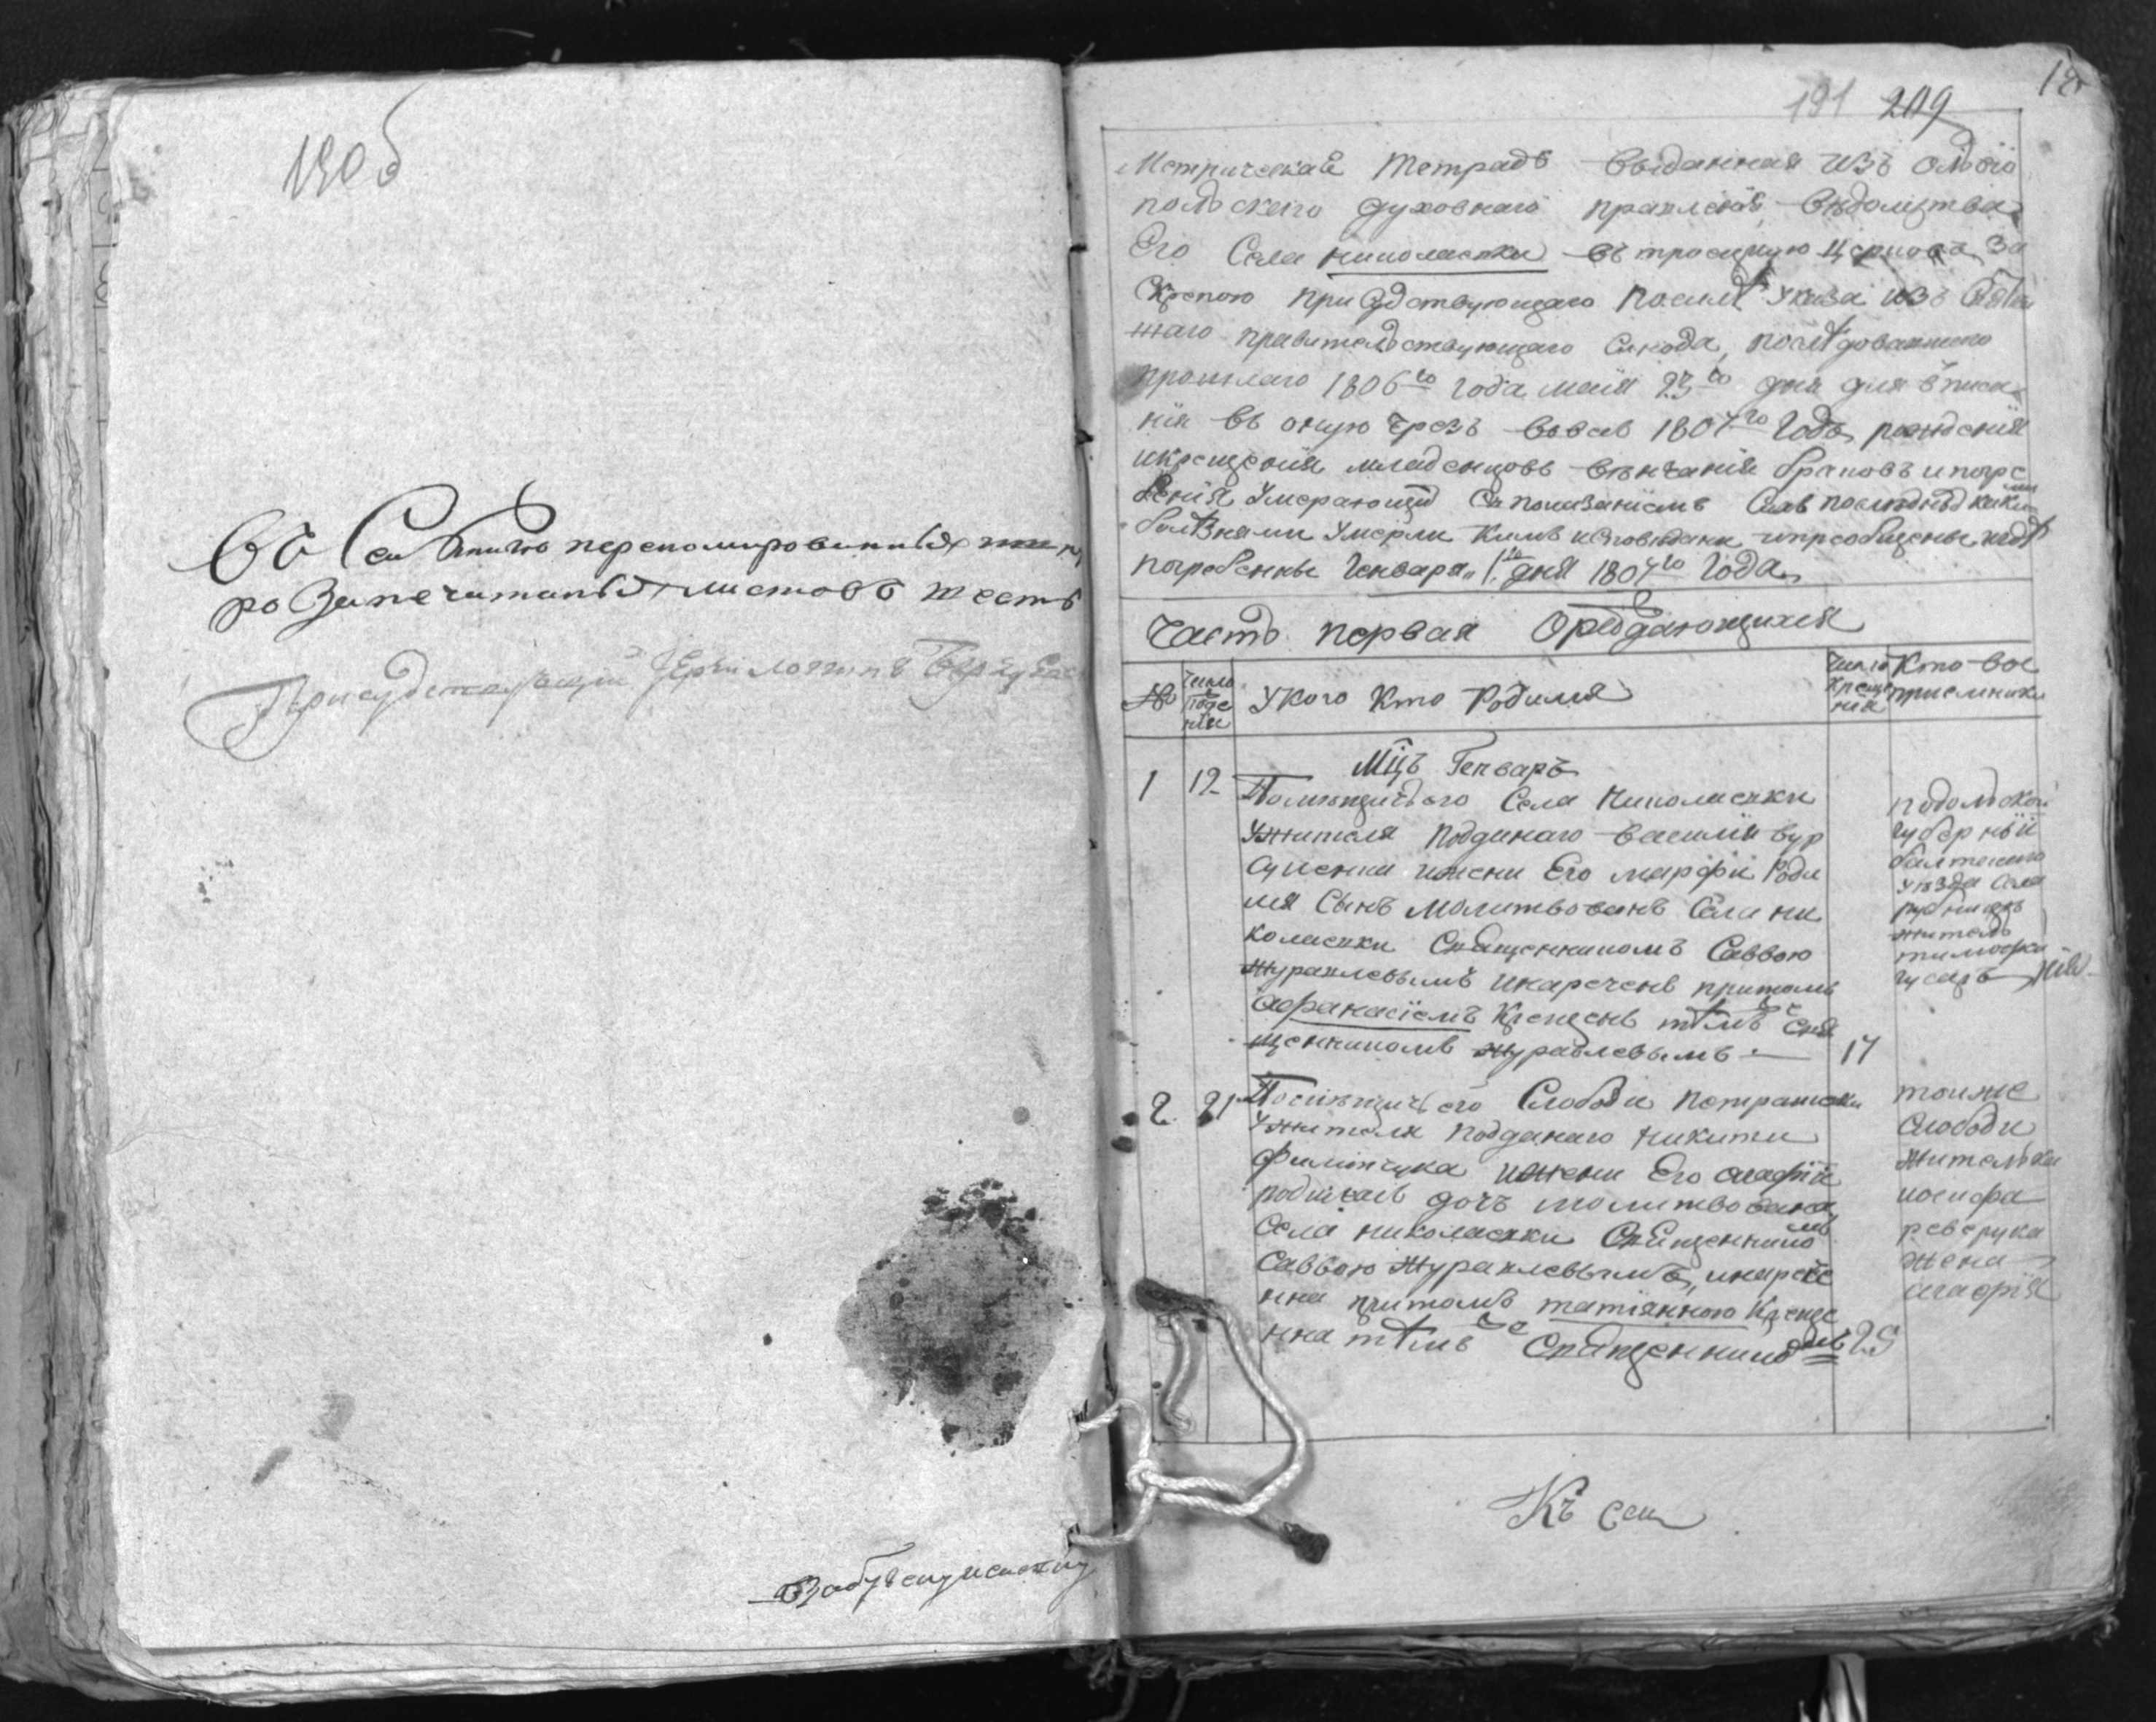 190 б
Во сей
перенумерованныхъ
запечатанныхъ листовъ шесть
Присудствующій
191 209
Метрическая Тетрадь выданная изъ Ольвіо
польскаго духовнаго правленія, вѣдомства
Его Села николаевки въ троецкую церковь, За
Скрепою присудствующаго по силѣ указа изъ Святѣй
шаго правительствующаго Синода, послѣдовавшаго
прошлаго 1806го года, маія дня для вписа
нія въ оную чрезъ весь 1807го Годъ, рожденія
икрещенія младенцовъ вѣнчанія браковъ ипогре
бенія Умерающихъ Съ показаніемъ Сихъ послѣднихъ какими
болѣзнями Умерли кимъ исповѣданы, ипріобщены, игдѣ
погребенны Генваря 1го дня 1807го Года
Часть первая О раждающихся
№ Число рожденія Укого Кто Родился Число крещенія Кто вос
приемники
Мцъ Генварь
1 12 Помѣщичьего Села Николаевки
Ужителя Подданаго Василія бур
ижени Его марфи Роди
лся Сынъ молитвованъ Села ни
колаевки Священникомъ Саввою
Журавлевымъ инареченъ притомъ
афанасіемъ Крещенъ тѣмъ же Свя
щенникомъ Журавлевымъ 17
подольской
губерніи
балтского
уѣзда Села
житель
тимофей
гусаръ
2 21 Помѣщичьего Слободи Петрашевки
Ужителя Подданаго Никити
Филипчука ижени Его агафіи
родилась дочь молитвована
Села николаевки Священникомъ
Саввою Журавлевымъ, инарече
нна притомъ татіянною Креще
нна тѣмъ же Священникомъ 25
тоиже
слободи
жителя
иосифа
реверука
жена
агафія
Къ сей